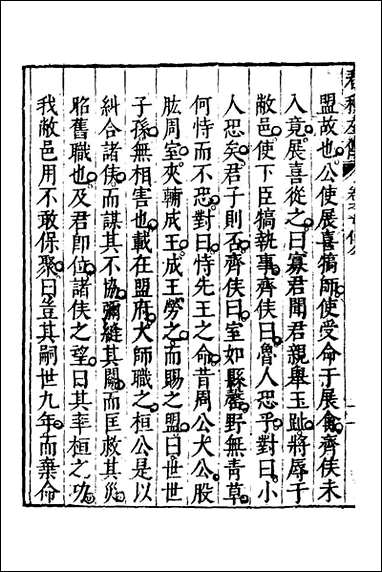 春秋左傳
盟故也公使展喜犒師使受命于展禽齊侯未
入竟展喜從之曰寡君聞君親舉玉趾將辱于
敝邑使下臣犒執事齊侯曰魯人恐乎對曰小
人恐矣君子則否齊侯曰室如縣罄野無青草
何恃而不恐對曰恃先王之命昔周公大公股
肱周室夾輔成王成王勞之而賜之盟曰世世
子孫無相害也載在盟府大師職之桓公是以
糾合諸侯而謀其不協彌縫其闕而匡救其災
昭舊職也及君即位諸侯之望曰其率桓之功
我敝邑用不敢保聚曰豈其嗣世九年而棄命